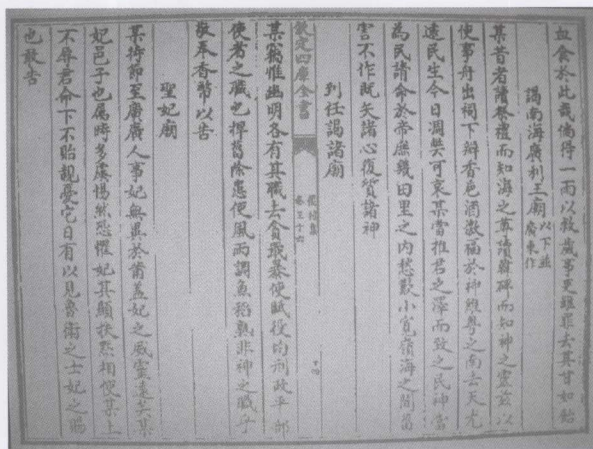 血食於此哉倘得一雨以救歲事吏雖罪去其甘如飴
謁南海廣利王廟 以下並廣東作
某昔者讀祭禮而知海之尊讀韓碑而知神之靈茲以
使事舟出祠下瓣香卮酒徼福於神維粵之南去天尤
遠民生今日凋弊可哀某當推君之澤而致之民神當
為民請命於帝庶幾田里之内愁歎小寛嶺海之間菑
害不作既矢諸心復質諸神
到任謁諸廟
欽定四庫全書
後村集
卷三十六
某竊惟幽明各有其職去貪戢暴使賦役均刑政平部
使者之職也捍菑除患使風雨調魚稻熟非神之職乎
敬奉香幣以告
聖妃廟
某持節至廣廣人事妃無異於莆蓋妃之威靈遠矣某
妃邑子也属時多虞惕然恐懼妃其顯扶黙相使某上
不辱君命下不貽親憂它日有以見魯衛之士妃之賜
也敢告